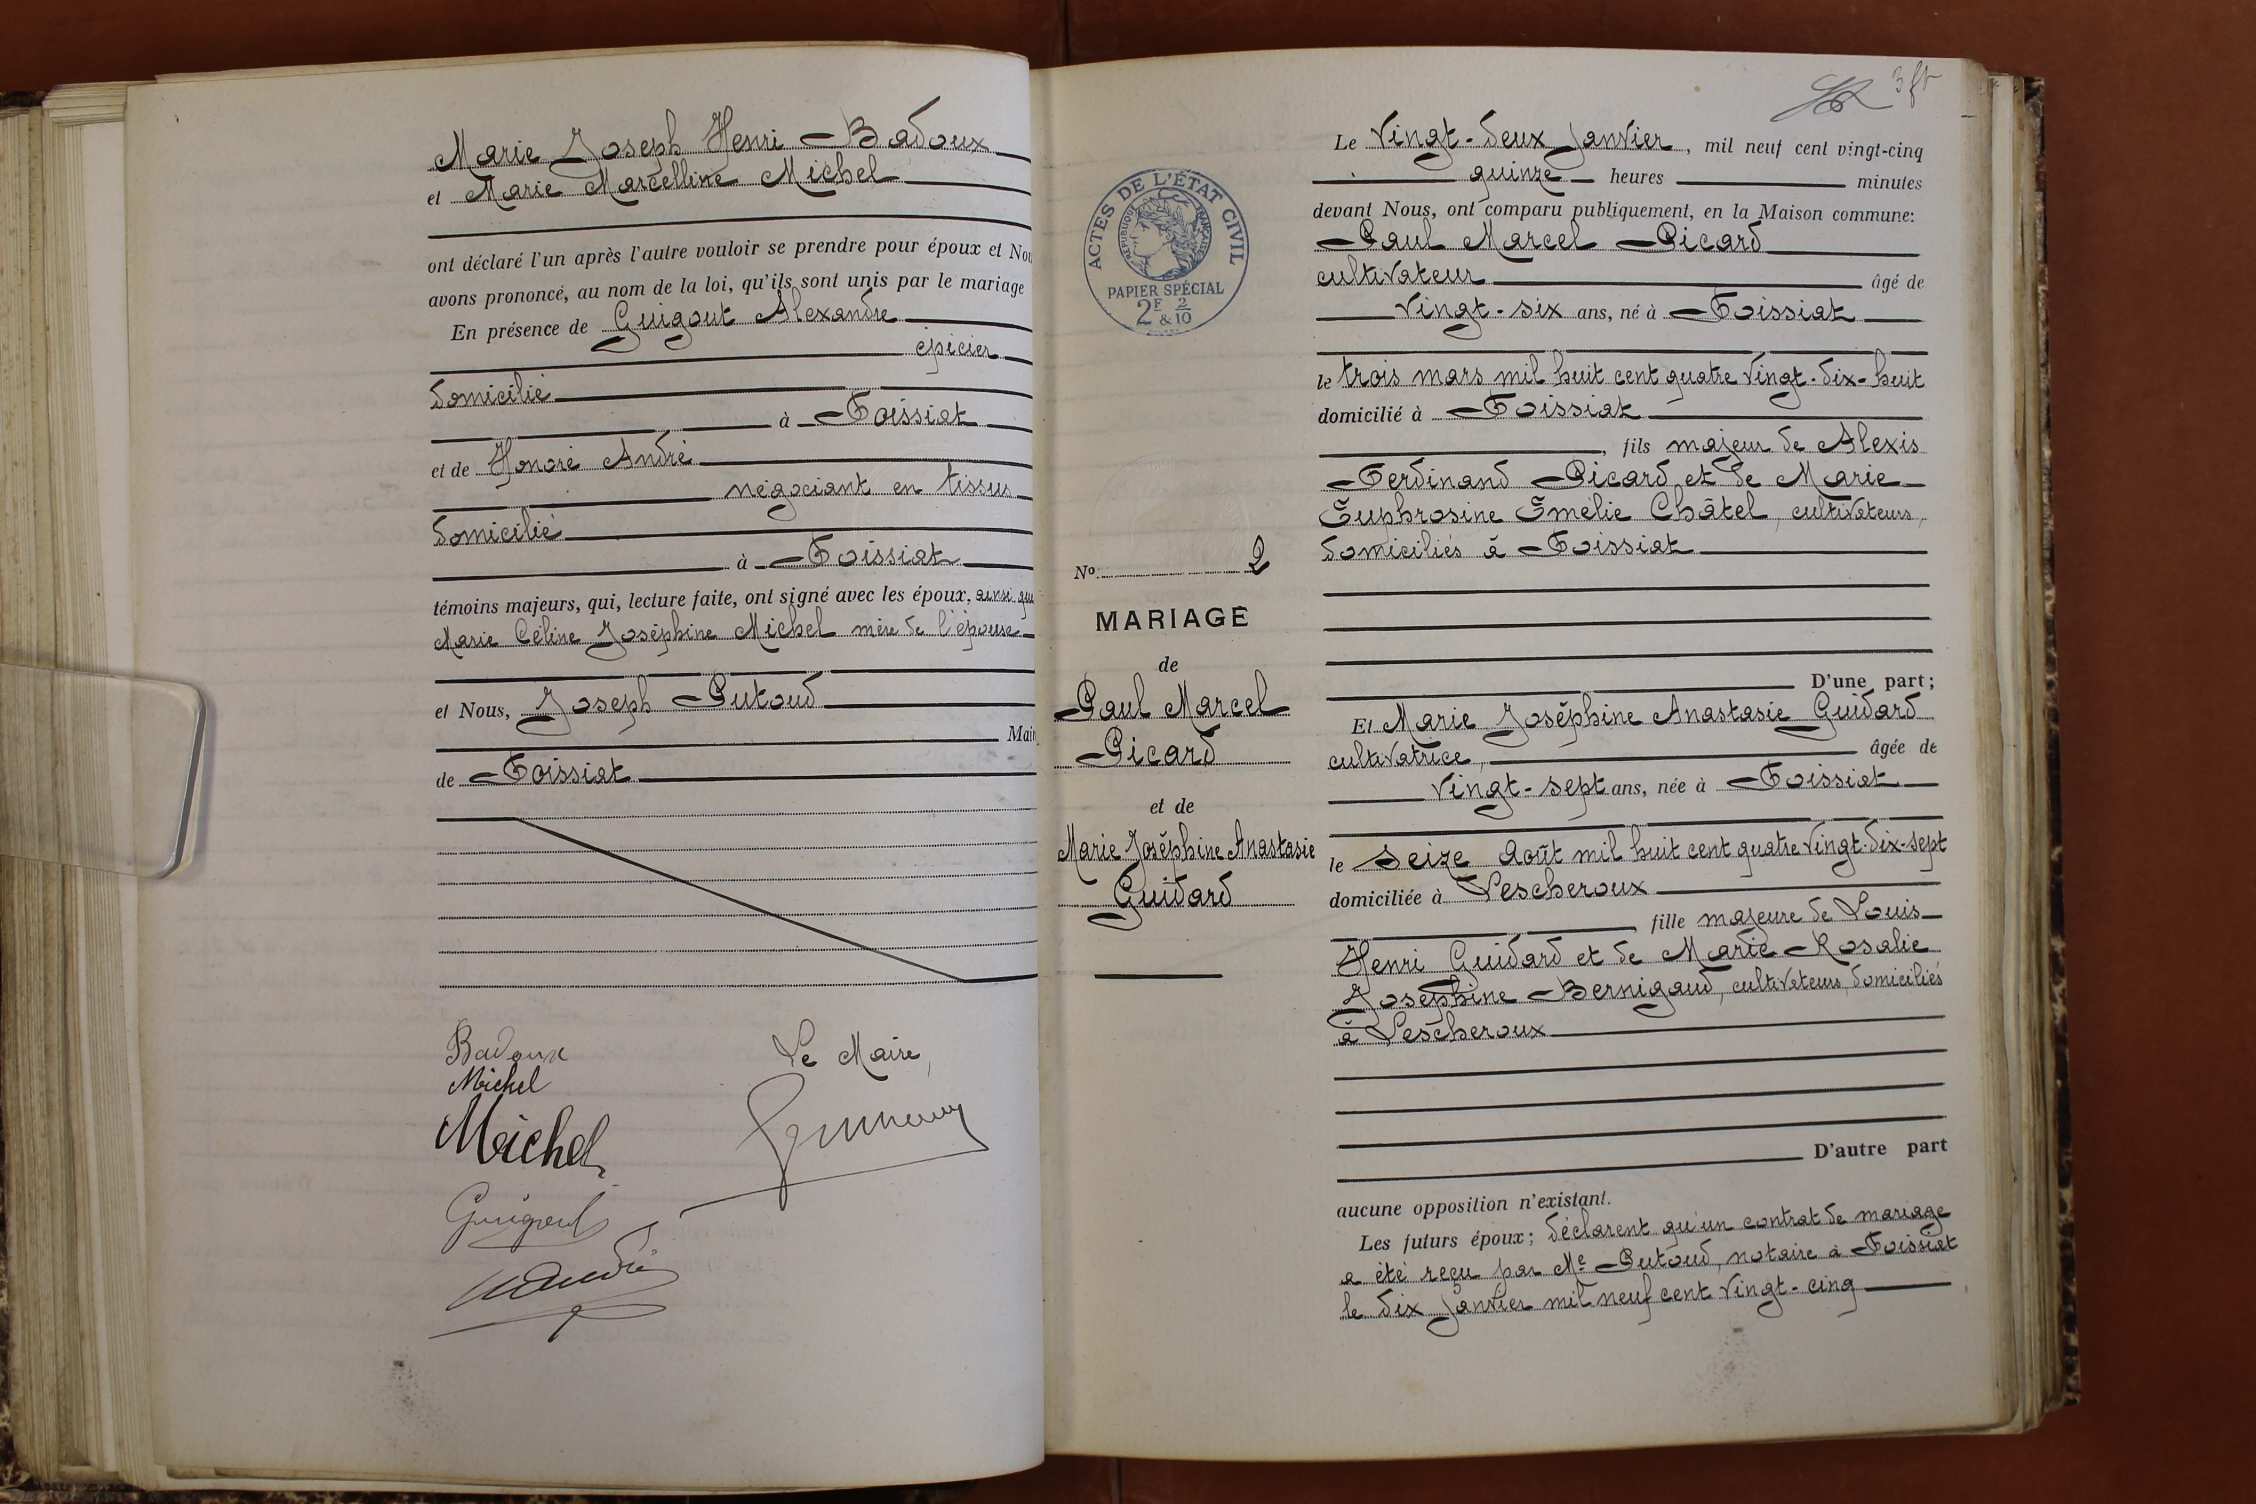 Marie Joseph Henri Badoux
et Marie Marcelline Michel
ont déclaré l'un après l'autre vouloir se prendre pour époux et Nou
avons prononcé, au nom de la loi, qu'ils sont unis par le mariage
En présence de Guigout Alexandre
épicier
domicilié
à Foissiat
et de Honoré André
négociant en tissus
domicilié
à Foissiat
témoins majeurs, qui, lecture faite, ont signé avec les époux, ainsi que
Marie Céline Joséphine Michel mère de l'épouse
et Nous, Joseph Putoud
Mair
de Foissiat
Badoux
Le Maire,
Michel
Michel
Guigout
3 ft
ACTES DE L'ÉTAT CIVIL
RÉPUBLIQUE FRANÇAISE
PAPIER SPÉCIAL
2F & 2/10
No 2
MARIAGE
de
Paul Marcel
Picard
et de
Marie Joséphine Anastasie
Guidard
Le vingt-deux janvier, mil neuf cent vingt-cinq
quinze heures minutes
devant Nous, ont comparu publiquement, en la Maison commune:
Paul Marcel Picard
cultivateur âgé de
vingt-six ans, né à Foissiat
le trois mars mil huit cent quatre vingt-dix-huit
domicilié à Foissiat
, fils majeur de Alexis
Ferdinand Picard et de Marie
Euphrosine Emélie Châtel, cultivateurs,
domiciliés à Foissiat
D'une part;
Et Marie Joséphine Anastasie Guidard
cultivatrice, âgée de
vingt-sept ans, née à Foissiat
le seize Août mil huit cent quatre vingt-dix-sept
domiciliée à Lescheroux
fille majeure de Louis
Henri Guidard et de Marie Rosalie
Joséphine Bernigaud, cultivateurs, domiciliés
à Lescheroux
D'autre part
aucune opposition n'existant.
Les futurs époux; déclarent qu'un contrat de mariage
a été reçu par Me Putoud, notaire à Foissiat
le dix janvier mil neuf cent vingt-cinq